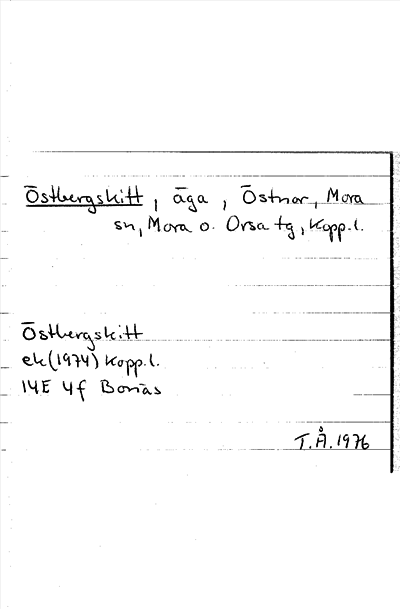 Östbergskitt, äga, Östnor, Mora
sn, Mora o. Orsa tg, Kopp.l.
Östbergskitt
ek (1974) Kopp.l.
14E 4f Bonäs
T.Å. 1976